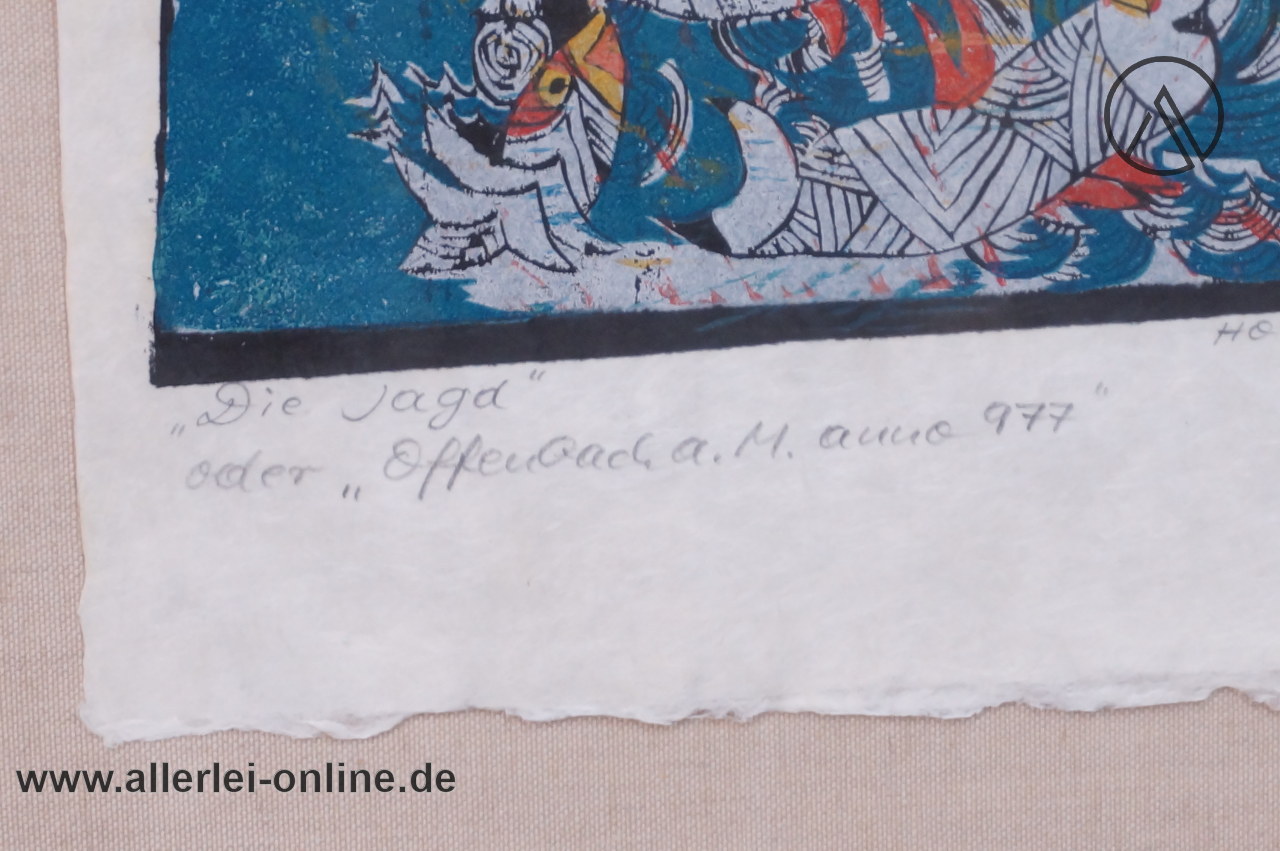 HO
„Die Jagd"
oder „Offenbach a. M. anno 977"
www.allerlei-online.de